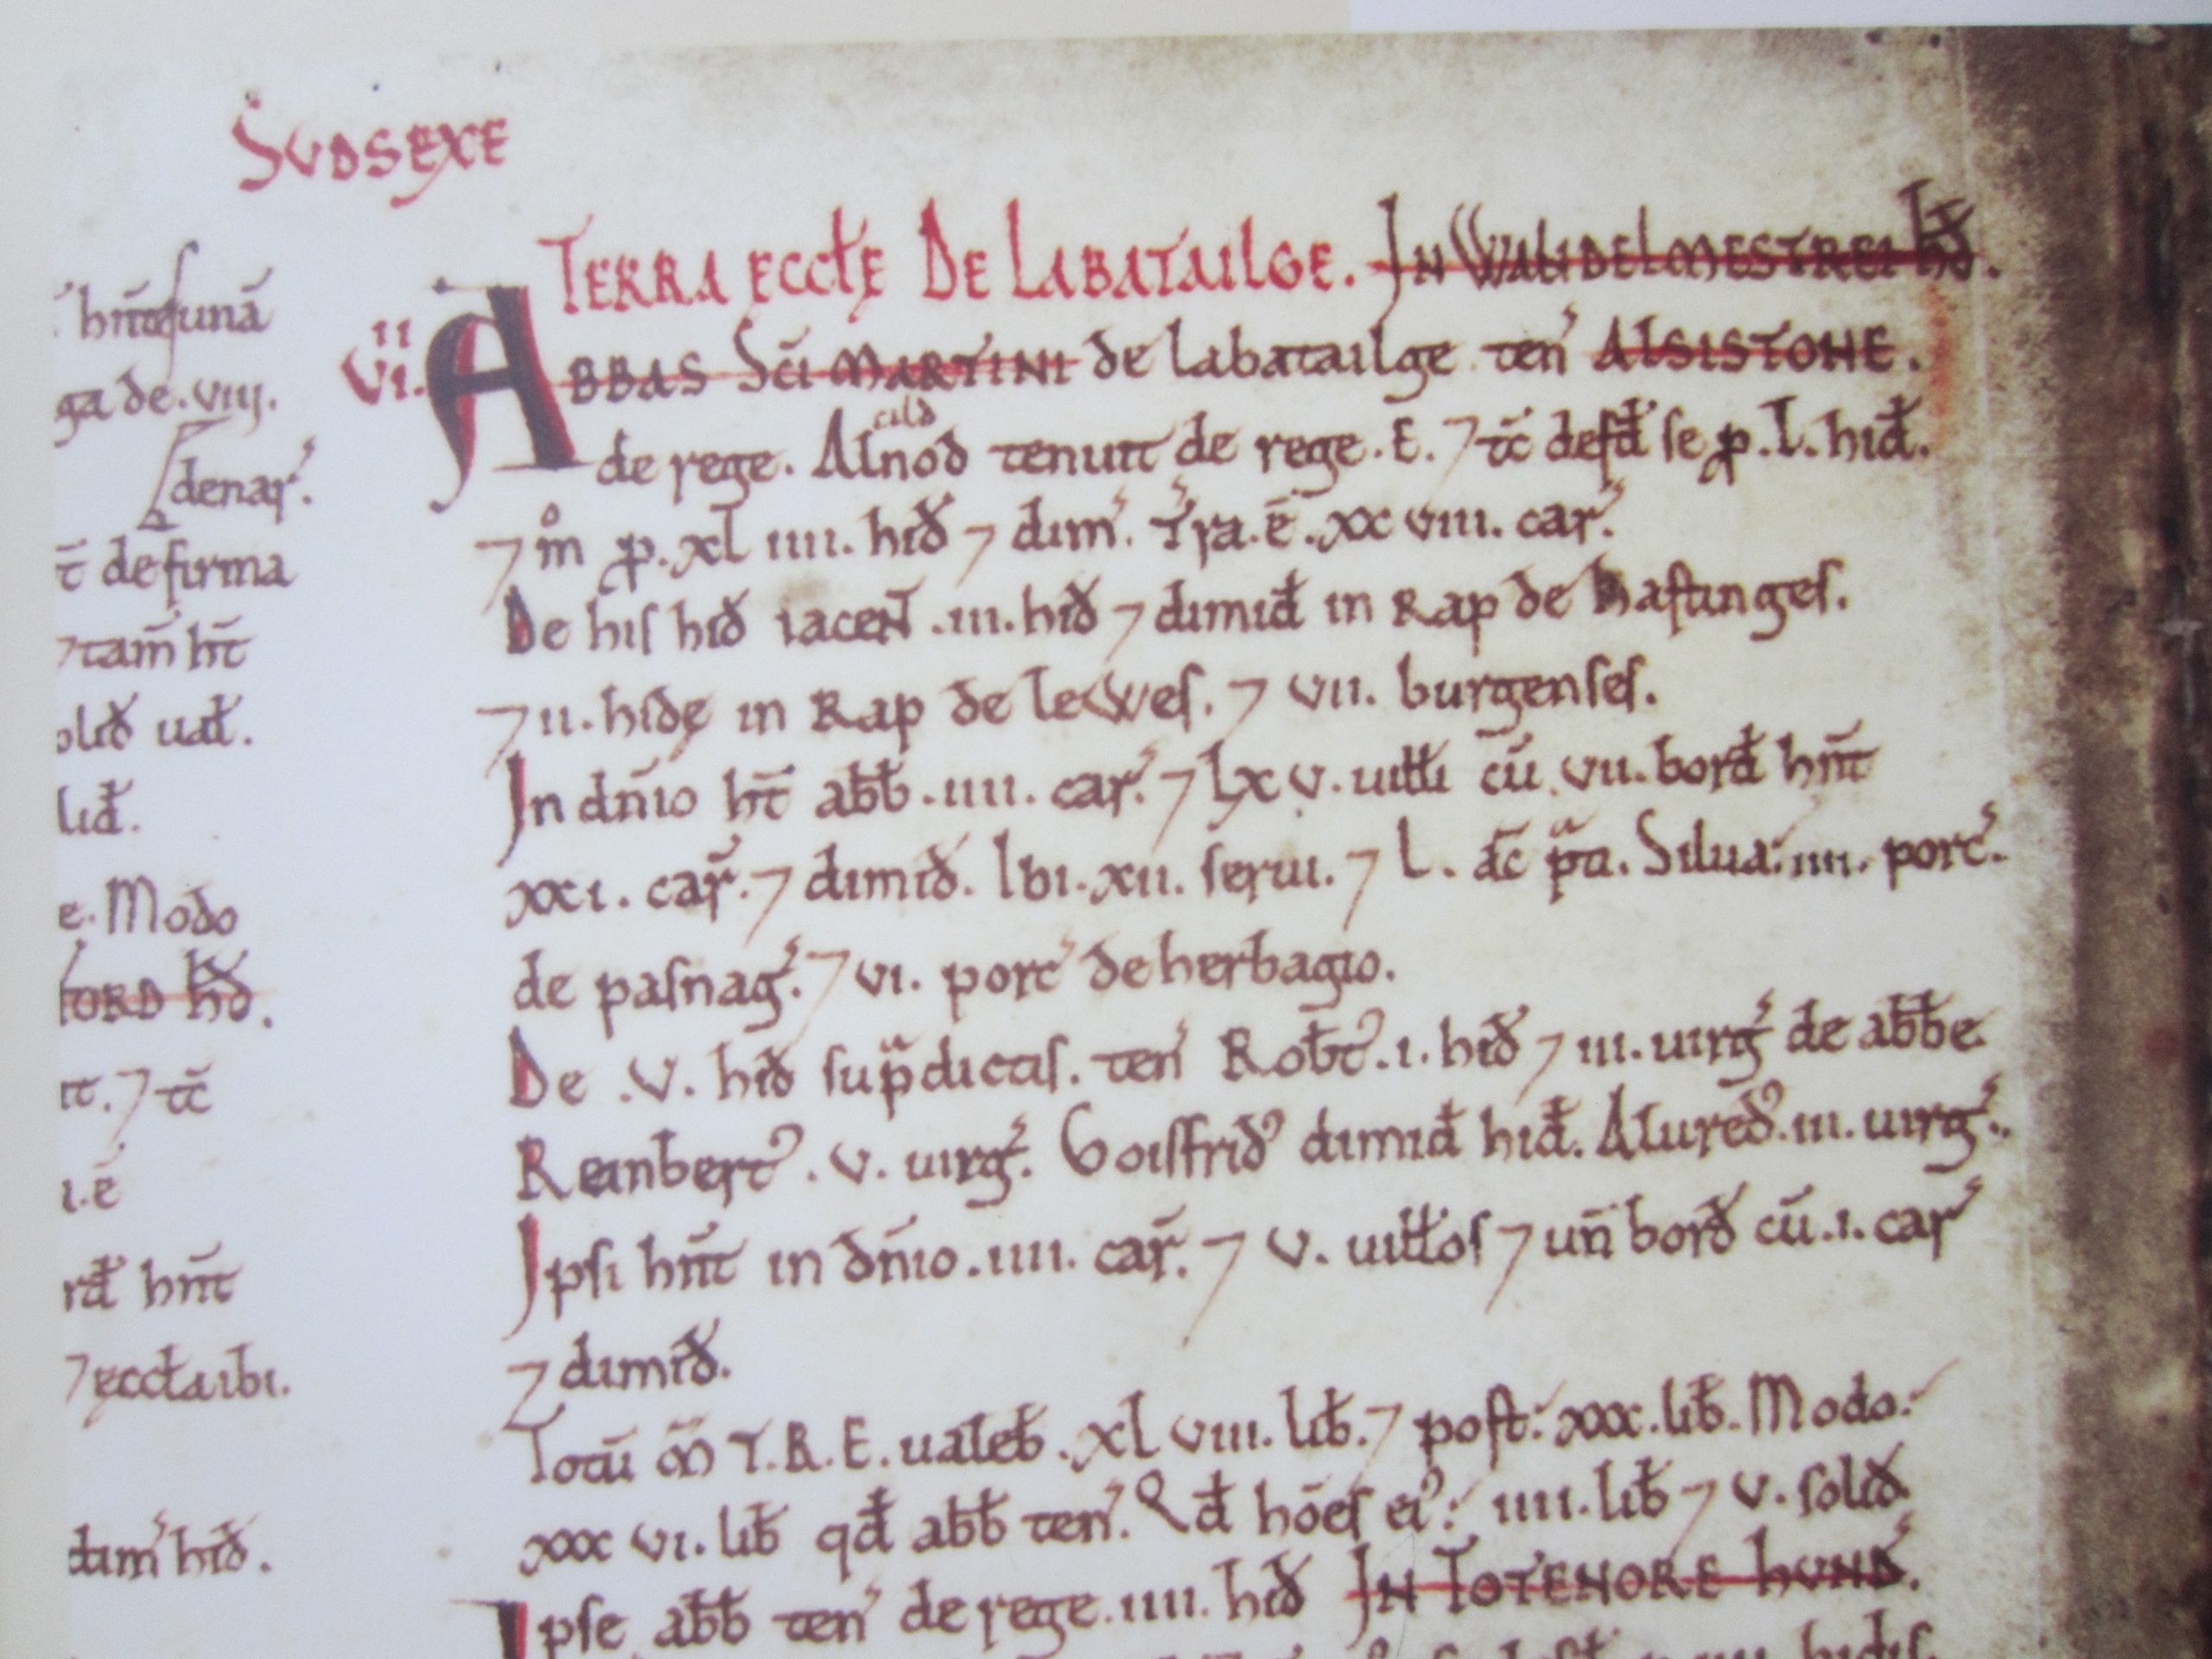 SUDSEXE
h̄nt unā
ga de .viij.
denar̛.
t̄ de firma
⁊ tam̄ ht̄
olid ual̄.
lid̄.
e. Modo
FORD HD̄.
it. ⁊ tc̄
i.ē
rd̄ hn̄t
⁊ ęccƚa ibi.
dim̛ hid̄.
TERRA ECCŁE DE LABATAILGE. IN WANDELMESTREI HD̄.
VI.II
ABBAS SC̄I MARTINI de labatailge ten̛ ALSISTONE.
de rege. Alnod cild tenuit de rege .E. ⁊ tc̄ defd̄ se ꝓ .L. hid̄.
⁊ m̊ ꝓ .xl iiii. hid̄ ⁊ dim̛. Tr̛a .ē .xx viii. car̛.
De his hid̄ iaceN̄ .iii. hid̄ ⁊ dimid̄ in Rap de hastinges.
⁊ ii. hidę in Rap de lewes. ⁊ vii. burgenses.
In dn̄io ht̄ abb̄ .iiii. car̛. ⁊ lxv. uiƚƚi cū .vii. bord̄ hn̄t
xxi. car̛. ⁊ dimid̄. Ibi .xii. serui. ⁊ L. ac̄ pͣti. Silua: .iiii. porc̛.
de pasnag̛. ⁊ vi. porc̛ de herbagio.
De .v. hid̄ supͣdictis. ten̛ Robt̛ .i. hid̄ ⁊ iii. uirg̛ de abb̄e
Reinbert̛ .v. uirg̛. Goisfrid̛ dimid̄ hid̄. Alured̛ .iii. uirg̛.
Ipsi hn̄t in dn̄io .iiii. car̛. ⁊ v. uiƚƚos ⁊ un̄ bord̄ cū .i. car̛
⁊ dimid̄.
Totū m̄ T.R.E. ualeb̄ .xl viii. lib̄. ⁊ post: xxx. lib̄. Modo:
xxx vi. lib̄ qd̄ abb̄ ten̛. Qd̄ hōes ei̛: iiii. lib̄ ⁊ v. solid̄
Ipse abb̄ ten̛ de rege .iiii. hid̄ IN TOTENORE HVND̄.